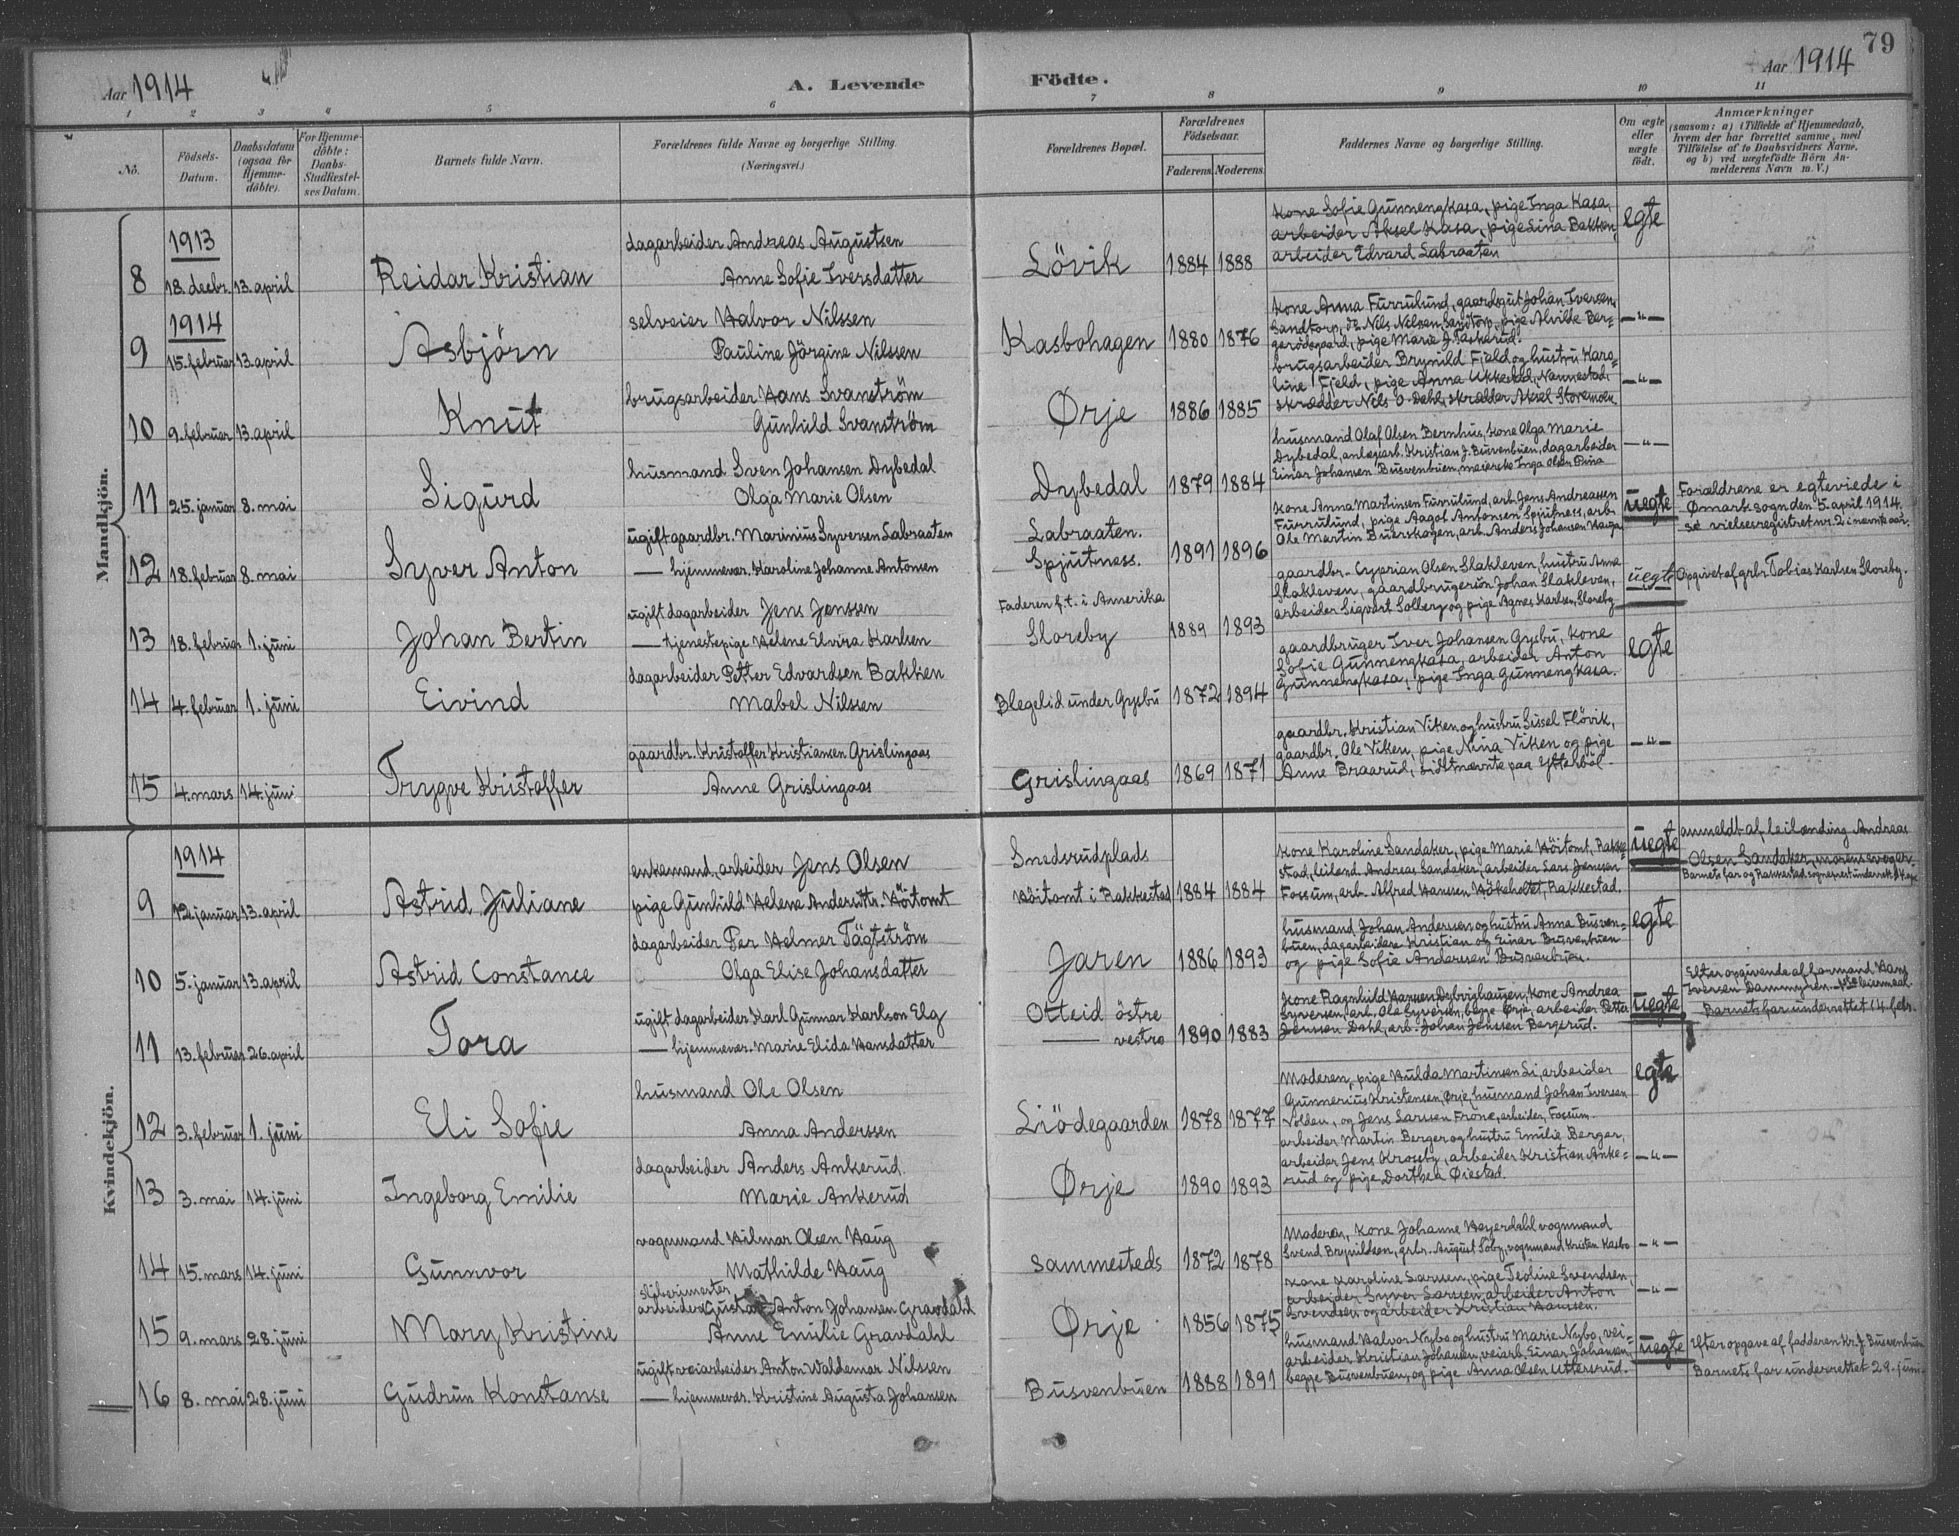 79
Aar 1914
A. Levende Födte.
Aar 1914
1 2 3 4 5 6 7 8 9 10 11
No.
Födsels-Datum.
Daabsdatum (ogsaa for Hjemme-döbte).
For Hjemme-döbte: Daabs-Stadfæstel-ses Datum.
Barnets fulde Navn.
Forældrenes fulde Navne og borgerlige Stilling. (Næringsvei.)
Forældrenes Bopæl.
Forældrenes Födselsaar.
Faderens. Moderens.
Faddernes Navne og borgerlige Stilling.
Om ægte eller uægte födt.
Anmærkninger
(saasom: a) i Tilfælde af Hjemmedaab,
hvem der har forrettet samme, med
Tilföielse af to Daabsvidners Navne,
og b) ved uægtefödte Börn An-
melderens Navn m. V.)
Mandkjön.
1913
8 18. decbr. 13. april Reidar Kristian
dagarbeider Andreas Augustsen
Anne Sofie Iversdatter
Lövik 1884 1888
Kone Sofie Gunnengkasa, pige Inga Kasa,
arbeider Aksel Kasa, pige Lina Bakken,
arbeider Edvard Labraaten
egte
1914
9 15. februar 13. april Asbjörn
selveier Halvor Nilssen
Pauline Jörgine Nilssen
Kasbohagen 1880 1876
Kone Anna Furrulund, gaardsgut Johan Iversen,
Sandtorp, do Nils Nilsen, Sandtorp, pige Alvilde Ber-
gerödegaard, pige Marie J. Taskerud.
— " —
10 9. februar 13. april Knut
brugsarbeider Hans Svanström
Gunhild Svanström
Ørje 1886 1885
brugsarbeider Brynild Fjeld og hustru Karo-
line Fjeld, pige Anna Ukkestad, Nannestad,
skrædder Nils O. Dahl, skrædder Aksel Storemoen.
— " —
11 25. januar 8. mai Sigurd
husmand Sven Johansen Dybedal
Olga Marie Olsen
Dybedal 1879 1884
husmand Olaf Olsen Bernhus, kone Olga Marie
Dybedal, anlægsarb. Kristian J. Busvenbuen, dagarbeider
Einar Johansen Busvenbuen, meierske Inga Olsen
— " —
12 18. februar 8. mai Syver Anton
ugift gaardbr. Marinius Syversen Labraaten
— hjemmevær. Karoline Johanne Antonsen
Labraaten.
Spjutness. 1891 1896
Kone Anna Martinsen Furrulund, arb. Jens Andreassen
Furrulund, pige Aagot Antonsen Spjutness, arb.
Ole Martin Buerskogen, arb. Anders Johansen
uegte
Forældrene er egteviede i
Ømark sogn den 5. april 1914
se vielsesregistret nr. 2 i nævnte aar.
13 18. februar 1. juni Johan Bertin
ugift dagarbeider Jens Jenssen
— tjenestepige Helene Elvira Karlsen
Faderen f.t. i Amerika
Sloreby 1889 1893
gaardbr. Cyprian Olsen Slakleven, hustru Anna
Slakleven, gaardbrugersön Johan Slakleven,
arbeider Sigvart Solberg og pige Agnes Karlsen, Sloreby
uegte
Opgivet af grbr. Tobias Karlsen Sloreby.
14 4. februar 1. juni Eivind
dagarbeider Petter Edvardsen Bakken
Mabel Nilssen
Blegelid under Gysbu 1872 1894
gaardbruger Iver Johansen Gysbu, kone
Sofie Gunnengkasa, arbeider Anton
Gunnengkasa, pige Inga Gunnengkasa.
egte
15 4. mars 14. juni Trygve Kristoffer
gaardbr. Kristoffer Kristiansen Grislingaas
Anne Grislingaas
Grislingaas 1869 1871
gaardbr. Kristian Viken og hustru Sissel Flövik,
gaardbr. Ole Viken, pige Nina Viken og pige
Anne Braarud, sidstnævnte paa Ytterböl.
— " —
Kvindekjön.
1914
9 12. januar 13. april Astrid Juliane
enkemand, arbeider Jens Olsen
pige Gunhild Helena Andersdtr. Höitomt
Snedsrudplads
Höitomt i Rakkestad 1884 1884
Kone Karoline Sandaker, pige Marie Höitomt, Rakke-
stad, leilend. Andreas Sandaker, arbeider Lars Jenssen
Fossum, arb. Alfred Hanssen Hökeholtet, Rakkestad.
uegte
anmeldt af leilænding Andreas
Olsen Sandaker, morens svoger.
Barnets far og Rakkestad sogneprest underrett.
10 5. januar 13. april Astrid Constance
dagarbeider Per Helmer Tägtström
Olga Elise Johansdatter
Jaren 1886 1893
husmand Johan Anderssen og hustru Anna Busven-
buen, dagarbeidere Kristian og Einar Busvenbuen
og pige Sofie Anderssen Busvenbuen.
egte
11 13. februar 26. april Tora
ugift dagarbeider Karl Gunnar Karlson Elg
— hjemmevær. Marie Elida Hansdatter
Otteid östre
— vestre 1890 1883
Kone Ragnhild Hanssen Dybvighaugen, kone Andrea
Syversen, arb. Ole Syversen, begge Ørje, arbeider Petter
Jensson Dahl, arb. Johan Jenssen Bergerud.
uegte
Efter opgivende af formand Hans
Iversen Dammyren. 1ste leiermaal.
Barnets far underrettet 14 febr.
12 3. februar 1. juni Eli Sofie
husmand Ole Olsen
Anna Anderssen
Liödegaarden 1878 1877
Moderen, pige Hulda Martinsen Li, arbeider
Gunnerius Kristensen, Ørje, husmand Johan Iversen
Volden, og Jens Larsen Frone, arbeider, Fossum.
egte
13 3. mai 14. juni Ingeborg Emilie
dagarbeider Anders Ankerud.
Marie Ankerud
Ørje 1890 1893
arbeider Martin Berger og hustru Emilie Berger,
arbeider Jens Kroseby, arbeider Kristian Anke-
rud og pige Dorthea Øiestad.
— " —
14 15. mars 14. juni Gunnvor
vognmand Hilmar Olsen Haug
Mathilde Haug
Sammesteds 1872 1878
Moderen, Kone Johanne Heyerdahl vognmand
Svend Brynildsen, grbr. August Toby, vognmand Kristen Kasbo
— " —
15 9. mars 28. juni Mary Kristine
sliberimester
arbeider Gustav Anton Johansen Gravdahl
Anne Emilie Gravdahl
Ørje 1856 1875
Kone Karoline Larssen, pige Teoline Svendsen,
arbeider Syver Larssen, arbeider Anton
Svendsen og arbeider Kristian Hanssen.
— " —
16 8. mai 28. juni Gudrun Konstanse
ugift veiarbeider Anton Waldemar Nilssen
— hjemmevær. Kristine Augusta Johansen
Busvenbuen 1888 1891
husmand Halvor Nybo og hustru Marie Nybo, vei-
arbeider Kristian Johansen, veiarb. Einar Johansen,
begge Busvenbuen, og pige Anna Olsen Uttersrud.
uegte
Efter opgave af fadderen Kr. J. Busvenbuen
Barnets far underrettet 29. juni.